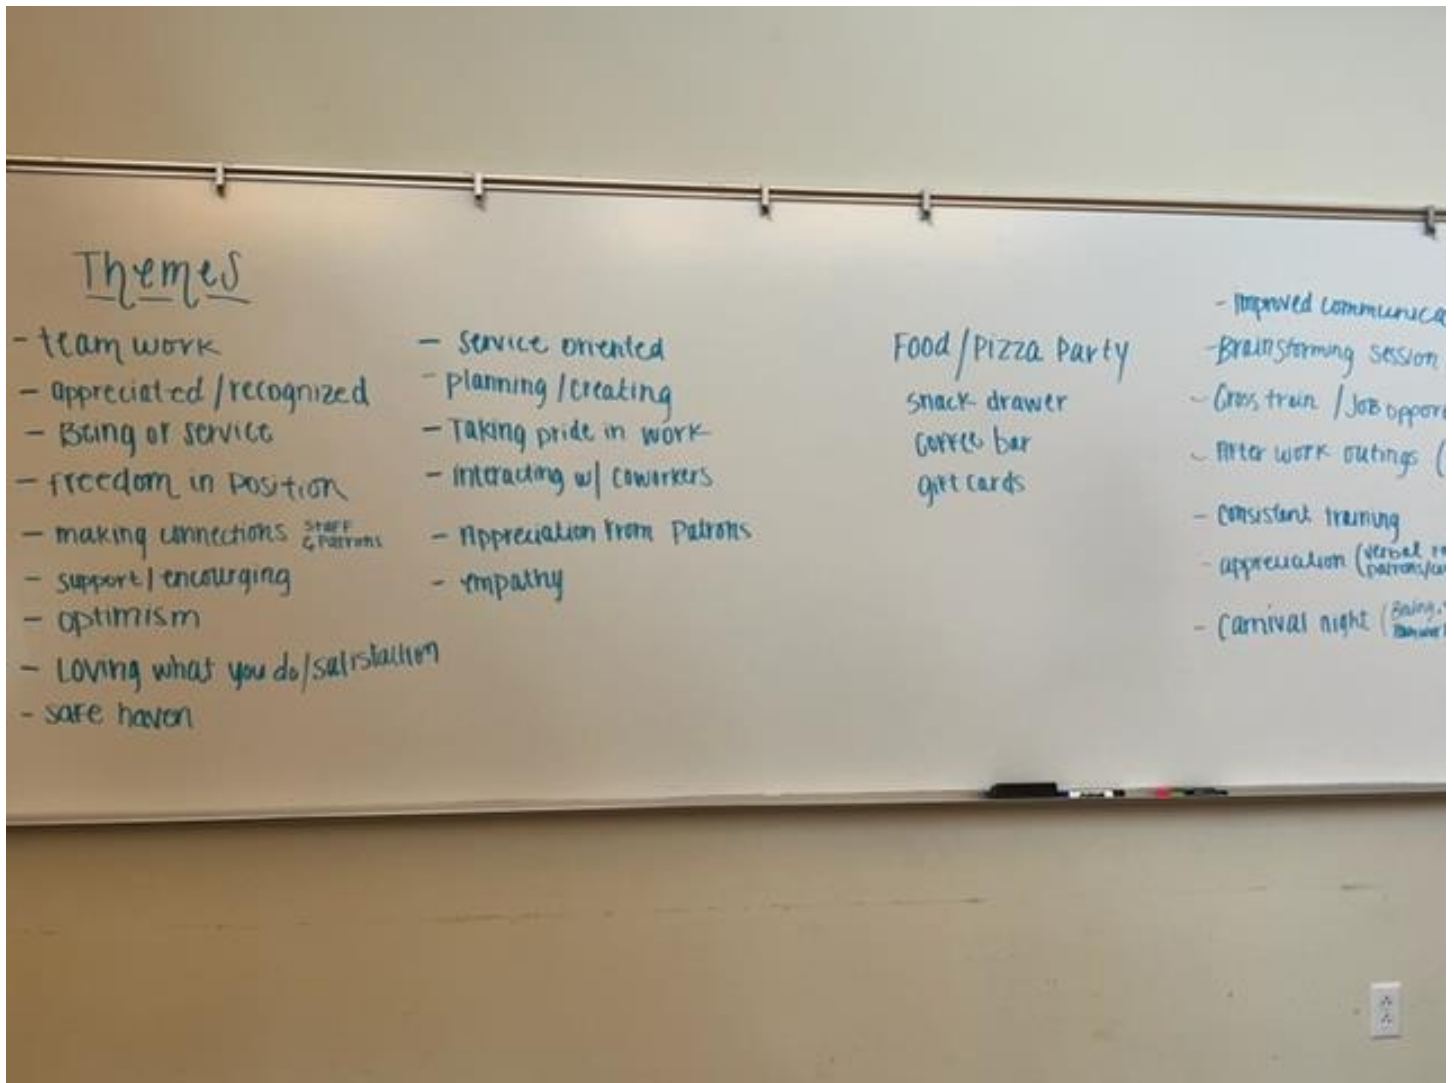 Themes
- team work
- appreciated / recognized
- Being of service
- freedom in position
- making connections staff & patrons
- support / encourging
- optimism
- Loving what you do / satisfaction
- safe haven
- service oriented
- planning / creating
- Taking pride in work
- interacting w/ coworkers
- Appreciation from Patrons
- empathy
Food / Pizza Party
snack drawer
coffee bar
gift cards
- Improved communica
- Brainstorming session
- Cross train / JOB oppor
- After work outings (
- consistent training
- appreciation (verbal patrons/
- Carnival night (